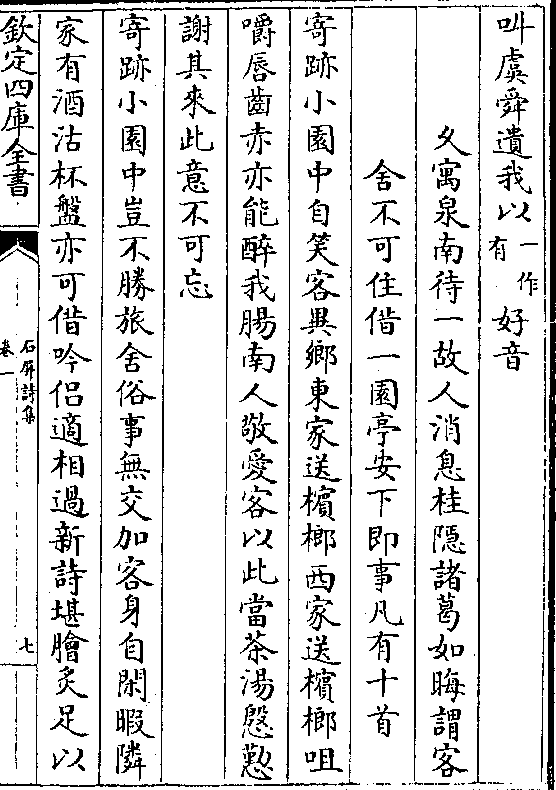 叫虞舜遺我以一作有好音
夊寓泉南待一故人消息桂隱諸葛如晦謂客
舍不可住借一園亭安下即事凡有十首
寄跡小園中自笑客異鄉東家送檳榔西家送檳榔咀
嚼唇齒赤亦能醉我腸南人敬愛客以此當茶湯慇懃
謝其來此意不可忘
寄跡小園中豈不勝旅舍俗事無交加客身自閑暇隣
家有酒沽杯盤亦可借吟侣適相過新詩堪膾炙足以
欽定四庫全書
石屏詩集
卷一
七